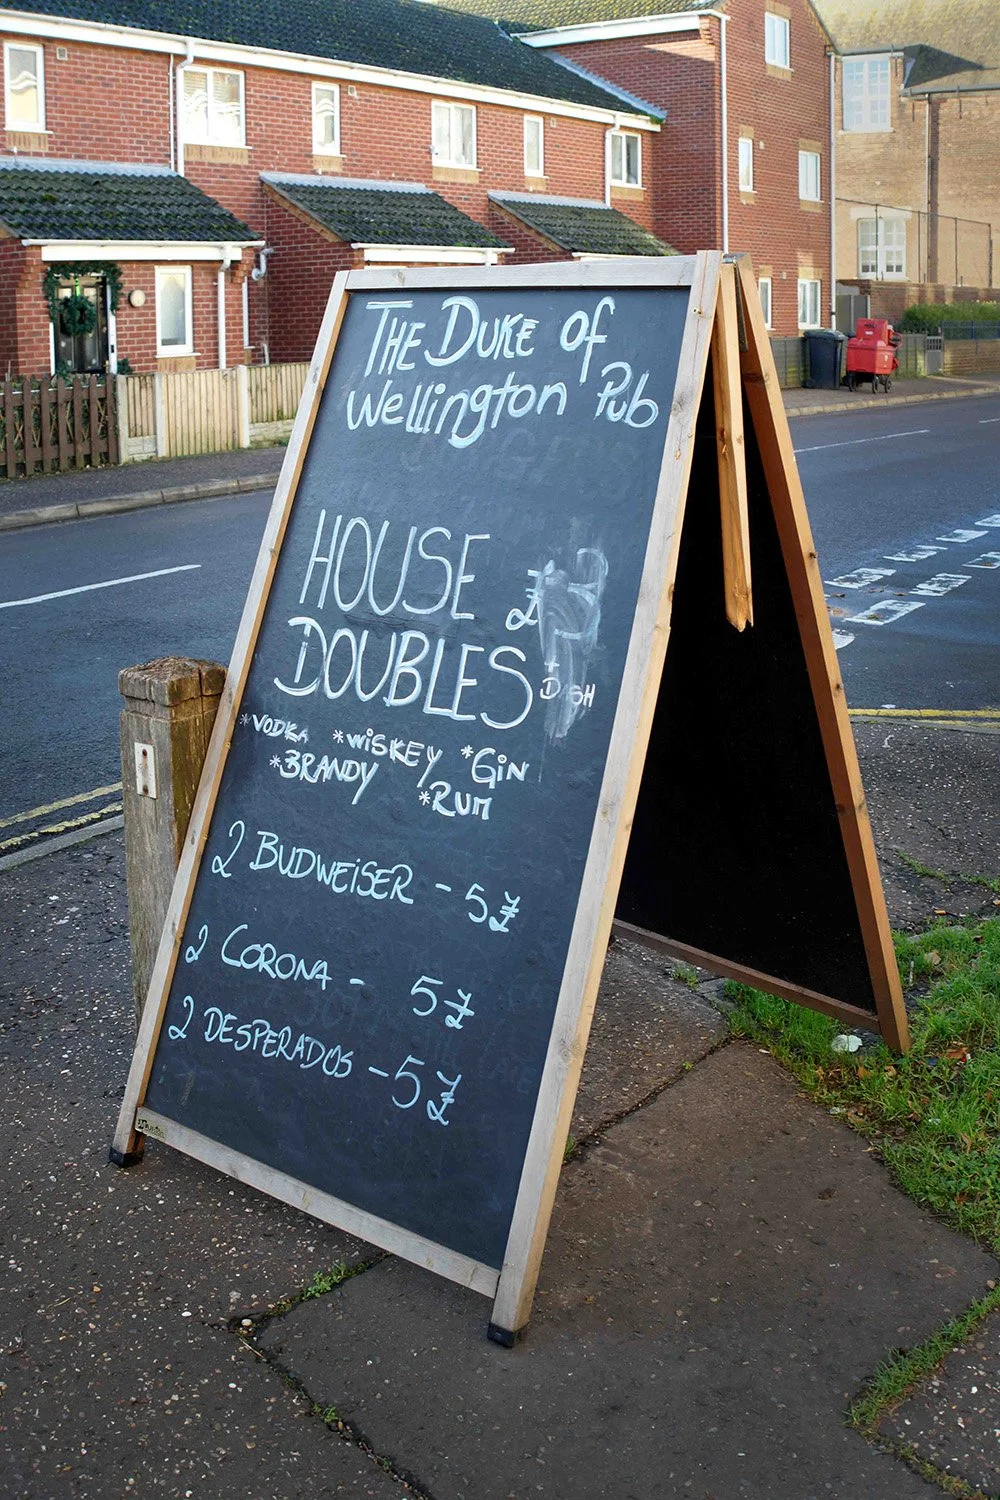 THE DUKE OF
Wellington Pub
HOUSE £
DOUBLES + DASH
*VODKA *WISKEY *GIN
*BRANDY *RUM
2 BUDWEISER - 5£
2 CORONA - 5£
2 DESPERADOS - 5£